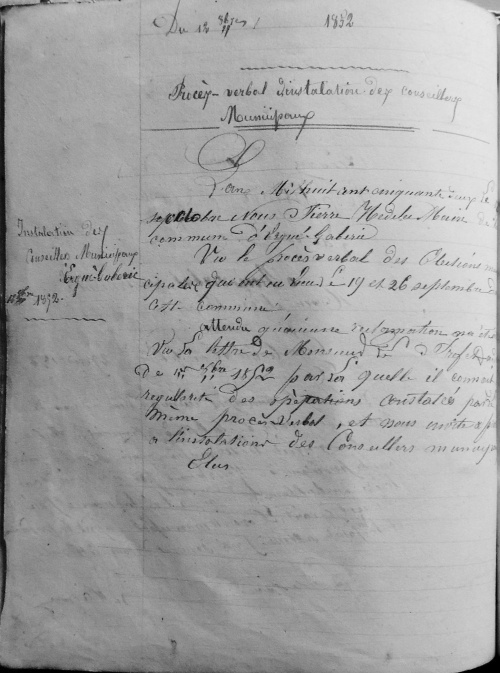 Du 12 8bres 1852
Procès-verbal d'instalation des conseillers
Municipaux
L'an Mil huit cent cinquante deux le
octobre Nous Pierre Hedelec Maire de
commune d'Ergué-Gaberic
Instalation des
Conseillers Municipaux
Ergué-Gaberic
1852.
Vu le procès verbal des Elections
cipales qui ont eu lieu le 19 et 26 septembre
cette commune
attendu qu'aucune reclamation
Vu la lettre de Monsieur le Prefet
De 8bre 1852 par laquelle il
regularité des opérations constatées par
même procès verbal, et nous invite a
a l'instalations des Conseillers
Elus